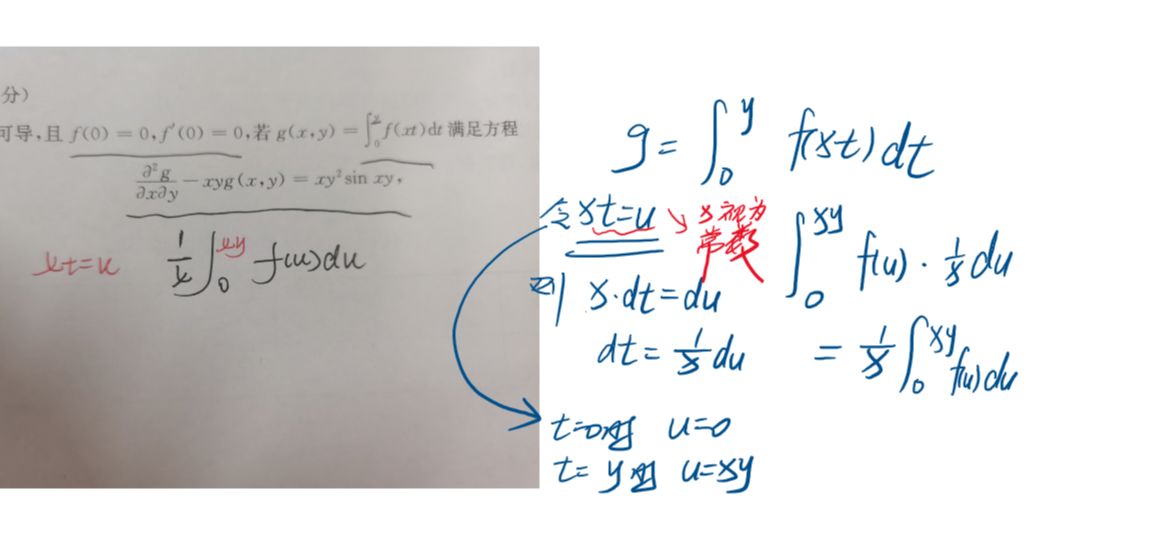 分)
可导,且 f(0) = 0, f′(0) = 0,若 g(x,y) = ∫₀^y f(xt)dt 满足方程
∂²g/∂x∂y − xyg(x,y) = xy² sin xy,
xt=u 1/x ∫₀^xy f(u)du
g= ∫₀^y f(xt)dt
令 xt=u ↘ x视为
常数
则 x·dt=du
dt= 1/x du
∫₀^xy f(u)· 1/x du
= 1/x ∫₀^xy f(u)du
t=0时 u=0
t=y时 u=xy